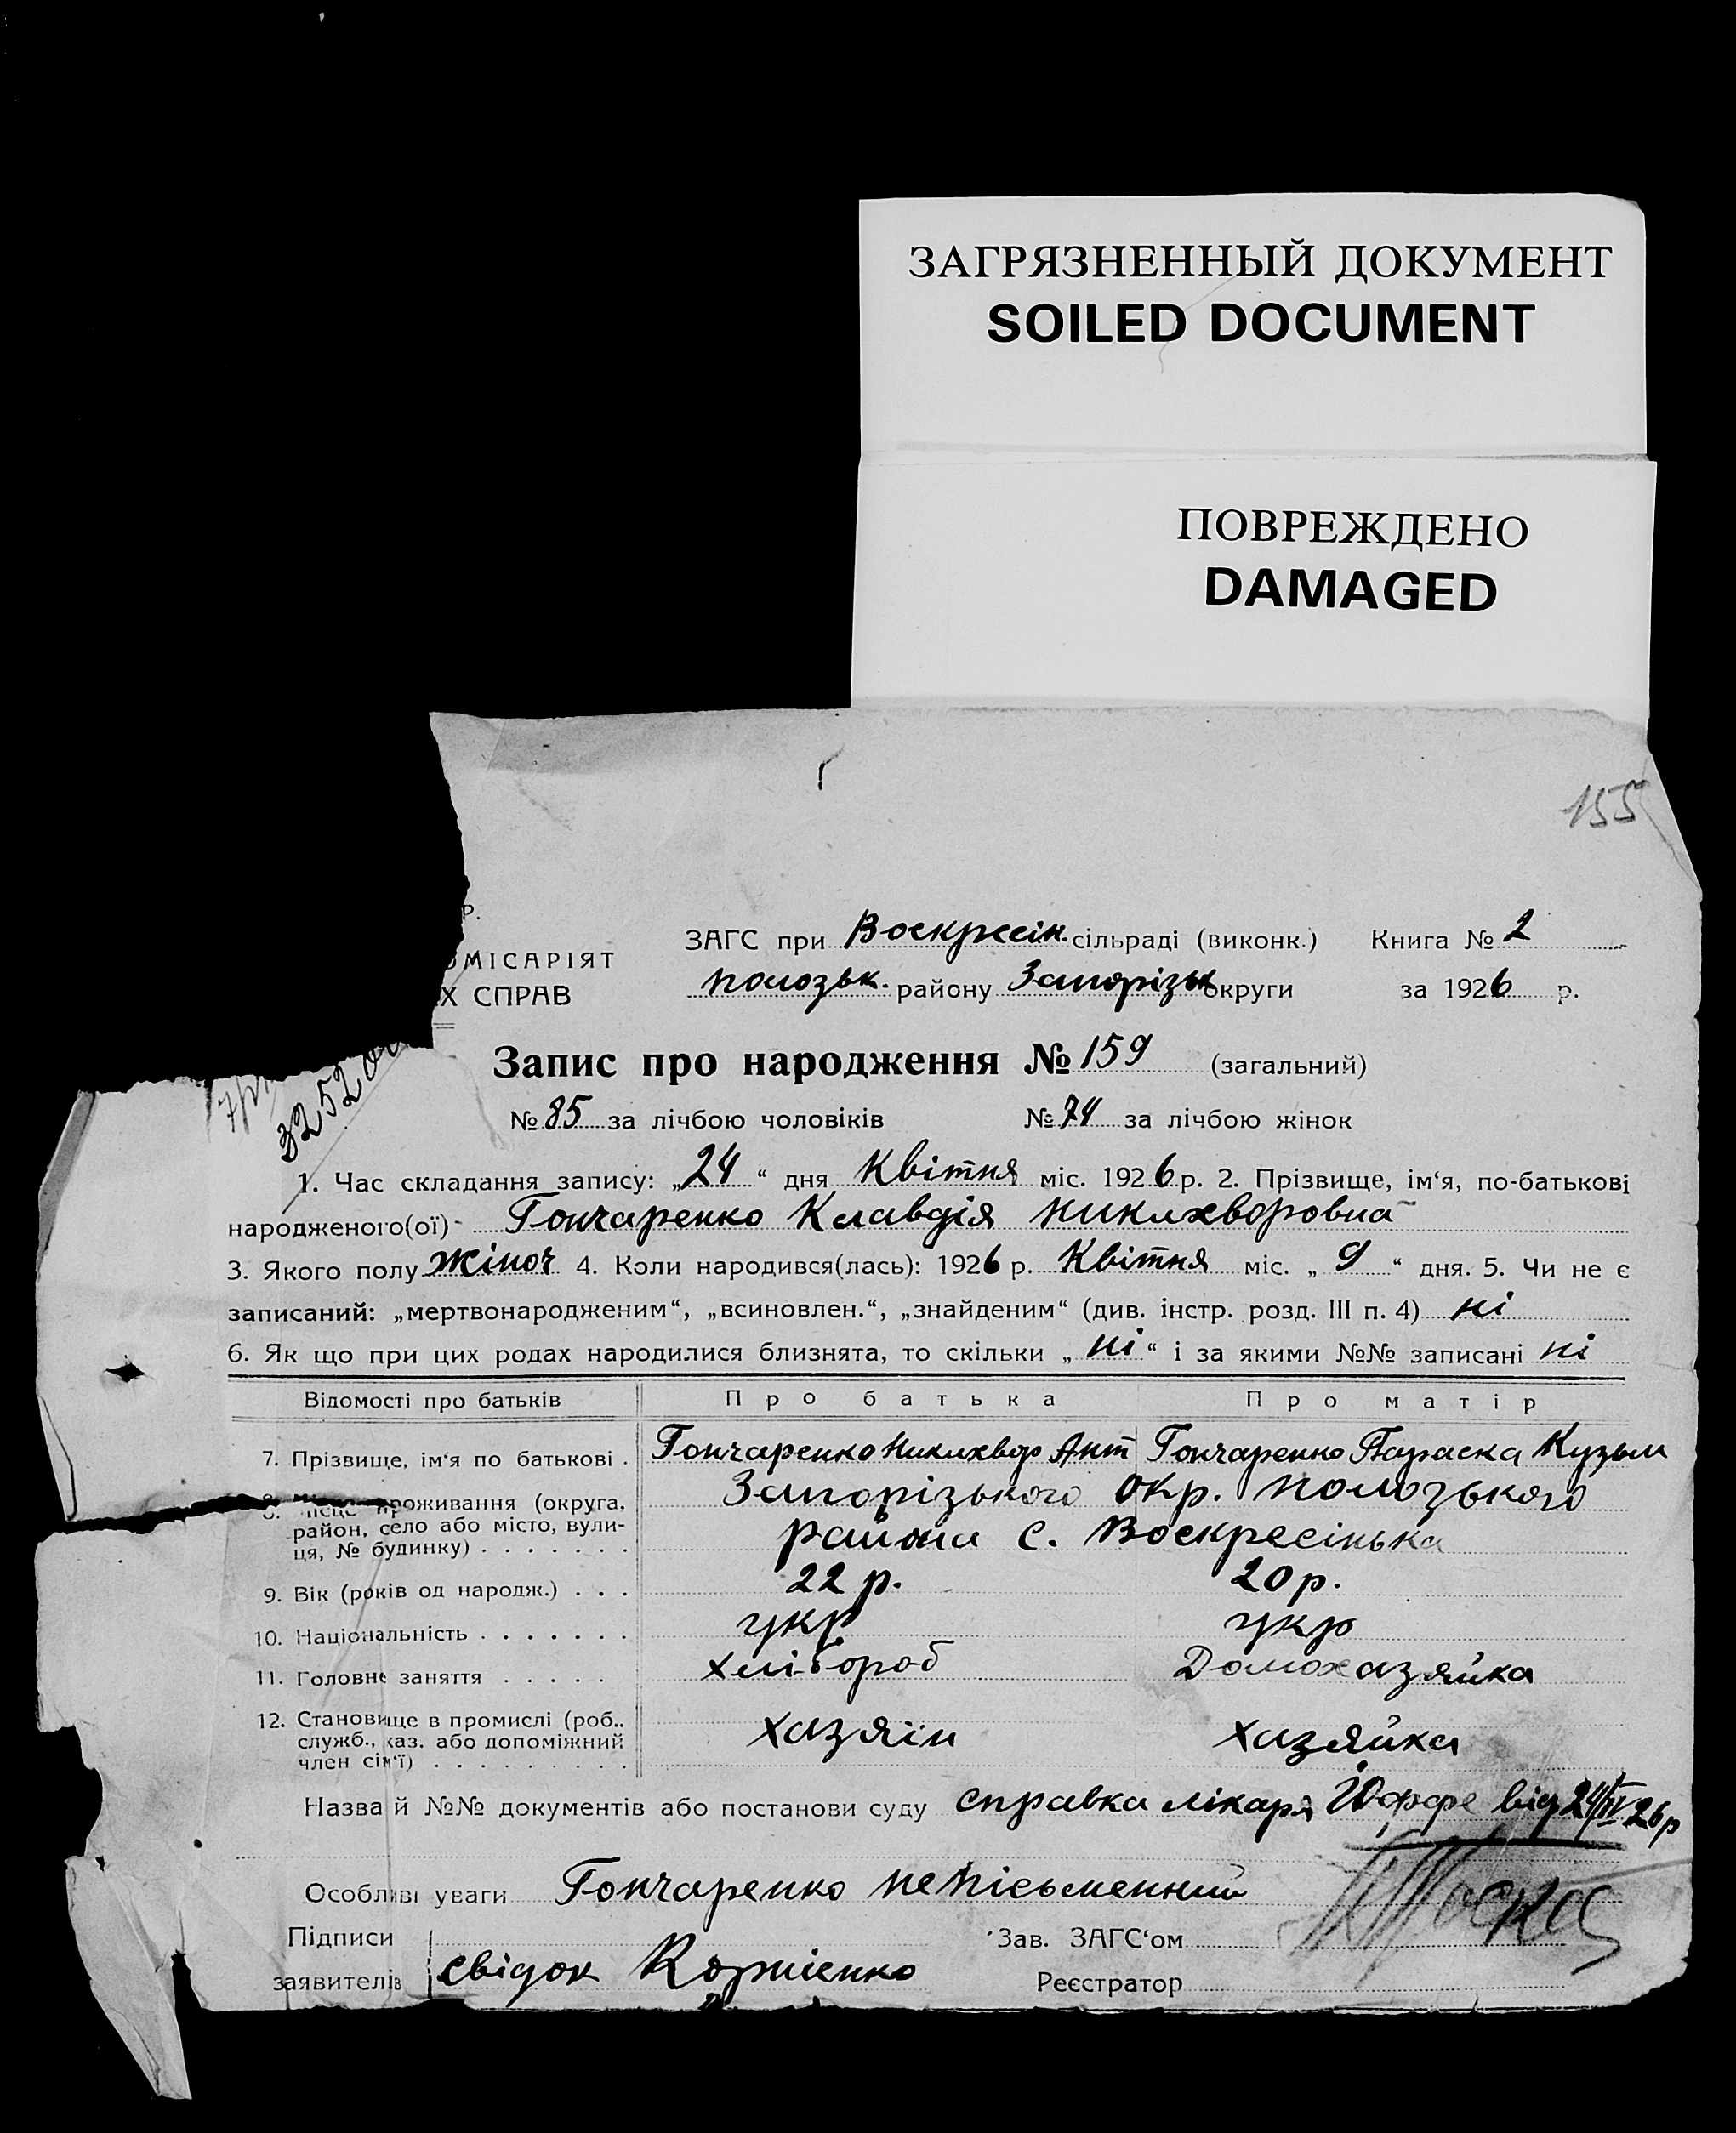 ЗАГРЯЗНЕННЫЙ ДОКУМЕНТ
SOILED DOCUMENT
ПОВРЕЖДЕНО
DAMAGED
155
Р.
ОМІСАРІЯТ
Х СПРАВ
ЗАГС при Воскресін. сільраді (виконк.) Книга № 2
Полозьк. району Запорізьк округи за 1926 р.
3252
Запис про народження № 159 (загальний)
№ 85 за лічбою чоловіків № 74 за лічбою жінок
1. Час складання запису: „24“ дня Квітня міс. 1926 р. 2. Прізвище, ім‘я, по-батькові
народженого(ої) Гончаренко Клавдія Никихворовна
3. Якого полу жіноч 4. Коли народився(лась): 1926 р. Квітня міс. „9“ дня. 5. Чи не є
записаний: „мертвонародженим“, „всиновлен.“, „знайденим“ (див. інстр. розд. III п. 4) ні
6. Як що при цих родах народилися близнята, то скільки „ні“ і за якими №№ записані ні
Відомості про батьків Про батька Про матір
7. Прізвище, ім‘я по батькові . Гончаренко Никихвор Ант Гончаренко Параска Кузьм
8. Місце проживання (округа, Запорізького Окр. Полозького
район, село або місто, вули- района с. Воскресінька
ця, № будинку) . . . . . . .
9. Вік (років од народж.) . . . 22 р. 20 р.
10. Національність . . . . . . . укр укр
11. Головне заняття . . . . . хлібороб Домохазяйка
12. Становище в промислі (роб.. хазяїн хазяйка
служб., хаз. або допоміжний
член сім‘ї) . . . . . . . . .
Назва й №№ документів або постанови суду справка лікаря Йоффе від 24/IV 26 р
Особливі уваги Гончаренко неписьменний
Підписи Зав. ЗАГС‘ом
заявителів свідок Корнієнко Реєстратор